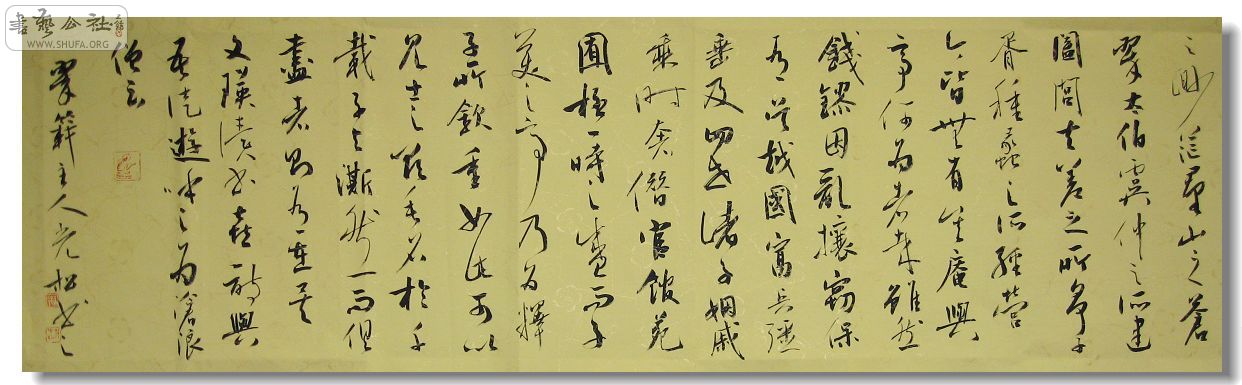 書藝公社
WWW.SHUFA.ORG
之渺茫羣山之蒼
翠太伯虞仲之所建
闔閭夫差之所爭子
胥種蠡之所經營
今皆無有矣庵與
亭何為者哉雖然
錢鏐因亂攘竊保
有吳越國富兵強
垂及四世諸子姻戚
乘時奢僭宮館苑
囿極一時之盛而子
美之亭乃為釋
子所欽重如此可以
見士之欲垂名於千
載不與澌然而俱
盡者則有在矣
文瑛讀書喜詩與
吾徒遊呼之為滄浪
僧云
翠主人光松書之